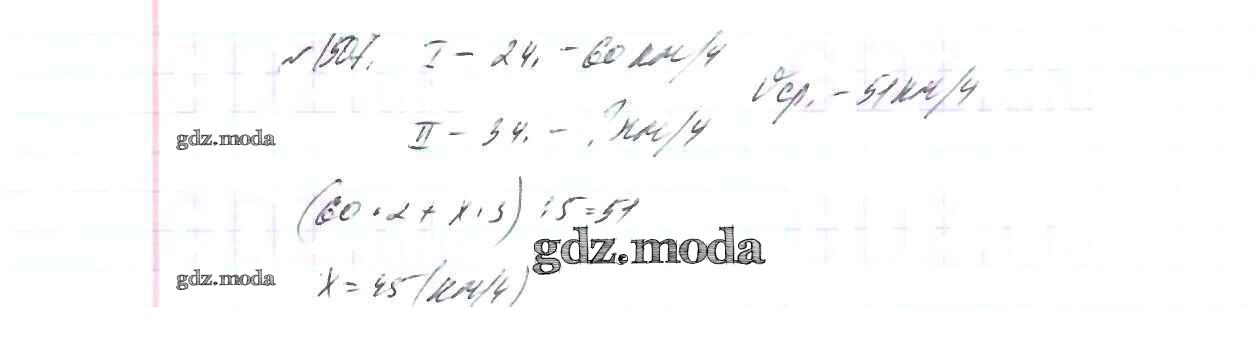 №1507. I – 2ч. – 60 км/ч
Vср. – 51 км/ч
II – 3ч. – ? км/ч
gdz.moda
(60 · 2 + x · 3) : 5 = 51
gdz.moda
gdz.moda
x = 45 (км/ч)